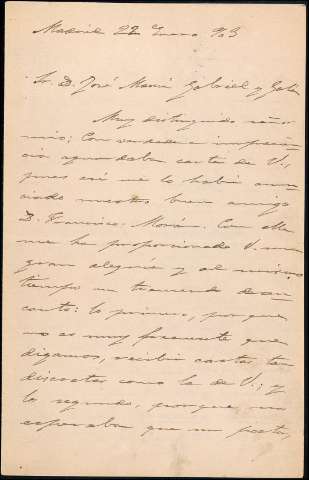 Madrid 22 Enero 903
Sr. D. José María Gabriel y Galán
Muy distinguido señor
mío: Con verdadera impacien-
cia aguardaba carta de V.,
pues así me lo había anun-
ciado nuestro buen amigo
D. Francisco Morán. Con ella
me ha proporcionado V. una
gran alegría y al mismo
tiempo un tremendo desen-
canto: lo primero, porque
no es muy frecuente que
digamos, recibir cartas tan
discretas como la de V.; y
lo segundo, porque no
esperaba que un poeta,